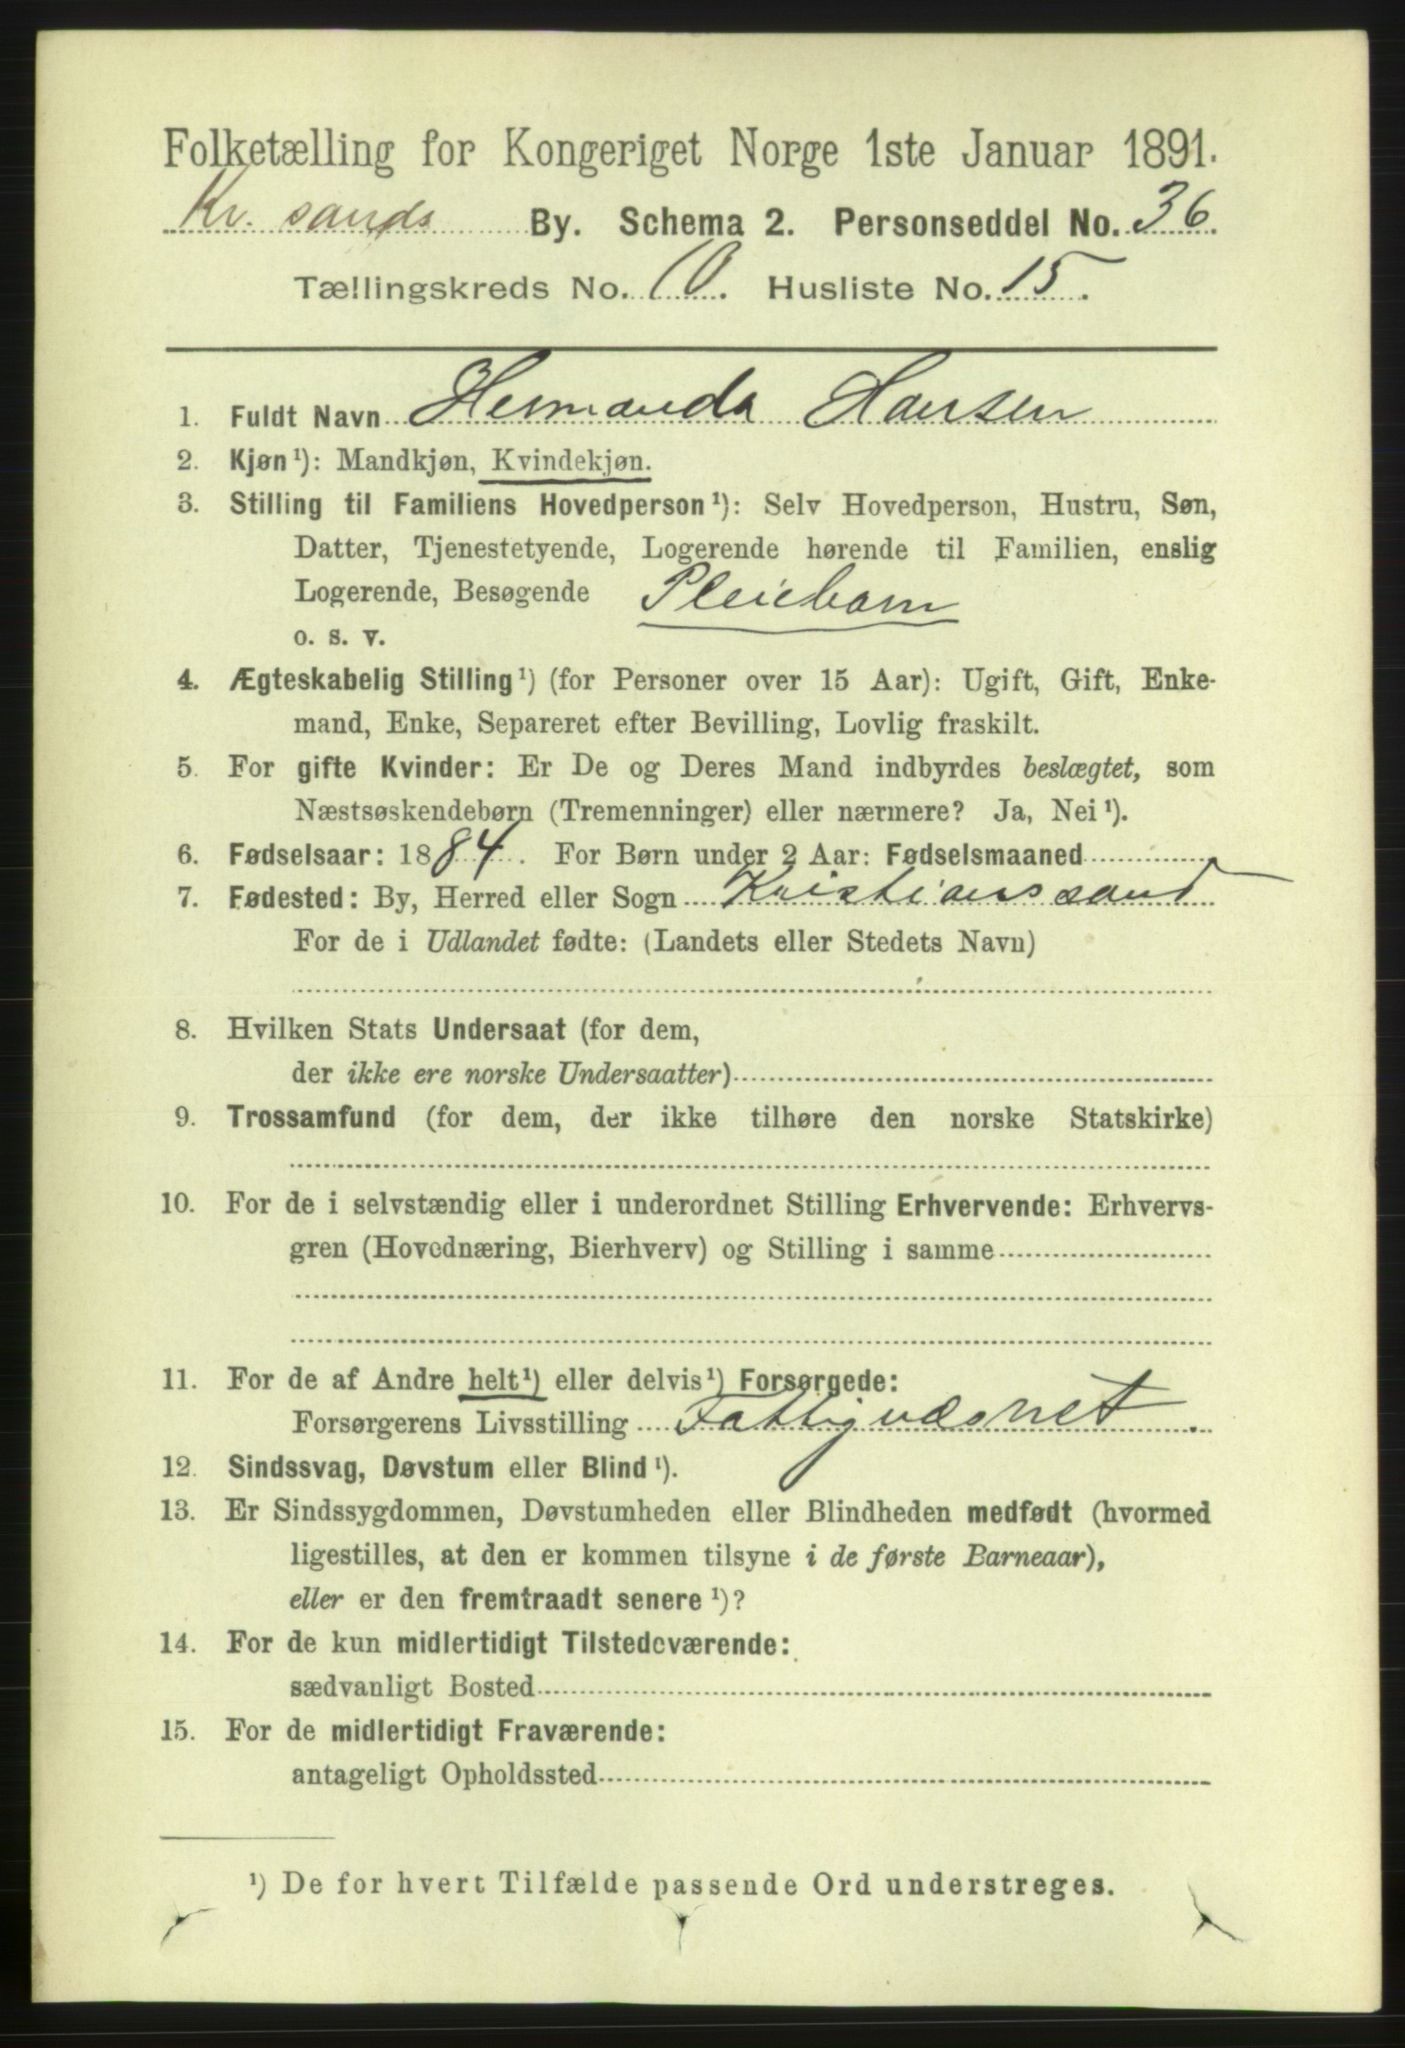 Folketælling for Kongeriget Norge 1ste Januar 1891.
Kr. sands By. Schema 2. Personseddel No. 36.
Tællingskreds No. 10. Husliste No. 15.
1. Fuldt Navn Hermanda Hansen
2. Kjøn¹): Mandkjøn, Kvindekjøn.
3. Stilling til Familiens Hovedperson¹): Selv Hovedperson, Hustru, Søn,
Datter, Tjenestetyende, Logerende hørende til Familien, enslig
Logerende, Besøgende Pleiebarn
o. s. v.
4. Ægteskabelig Stilling¹) (for Personer over 15 Aar): Ugift, Gift, Enke-
mand, Enke, Separeret efter Bevilling, Lovlig fraskilt.
5. For gifte Kvinder: Er De og Deres Mand indbyrdes beslægtet, som
Næstsøskendebørn (Tremenninger) eller nærmere? Ja, Nei¹).
6. Fødselsaar: 1884. For Børn under 2 Aar: Fødselsmaaned
7. Fødested: By, Herred eller Sogn Kristianssand
For de i Udlandet fødte: (Landets eller Stedets Navn)
8. Hvilken Stats Undersaat (for dem,
der ikke ere norske Undersaatter)
9. Trossamfund (for dem, der ikke tilhøre den norske Statskirke)
10. For de i selvstændig eller i underordnet Stilling Erhvervende: Erhvervs-
gren (Hovednæring, Bierhverv) og Stilling i samme
11. For de af Andre helt¹) eller delvis¹) Forsørgede:
Forsørgerens Livsstilling Fattigvæsnet.
12. Sindssvag, Døvstum eller Blind¹).
13. Er Sindssygdommen, Døvstumheden eller Blindheden medfødt (hvormed
ligestilles, at den er kommen tilsyne i de første Barneaar),
eller er den fremtraadt senere¹)?
14. For de kun midlertidigt Tilstedeværende:
sædvanligt Bosted
15. For de midlertidigt Fraværende:
antageligt Opholdssted
¹) De for hvert Tilfælde passende Ord understreges.